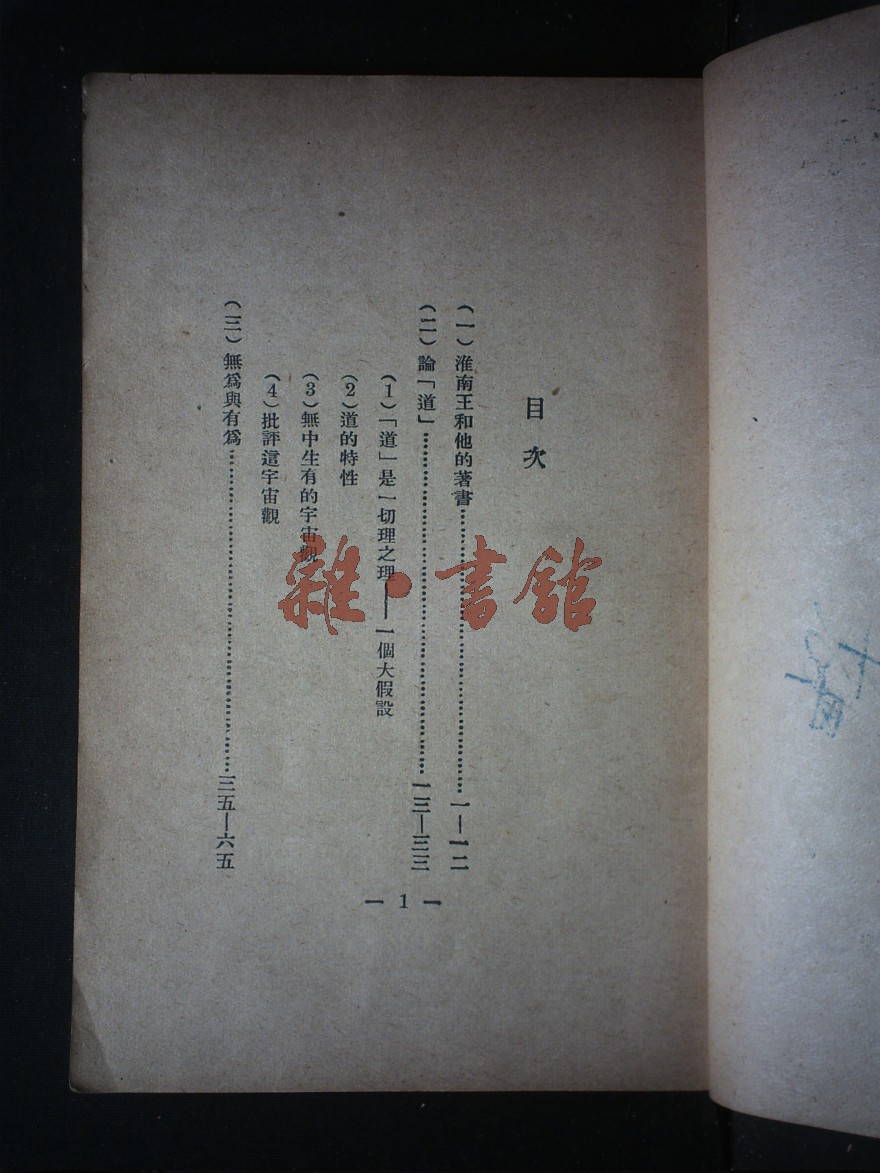 目次
(一)淮南王和他的著書……………………一—一二
(二)論「道」……………………一三—三三
(1)「道」是一切理之理——一個大假設
(2)道的特性
(3)無中生有的宇宙觀
(4)批評這宇宙觀
(三)無爲與有爲……………………三五—六五
— 1 —
雜·書館